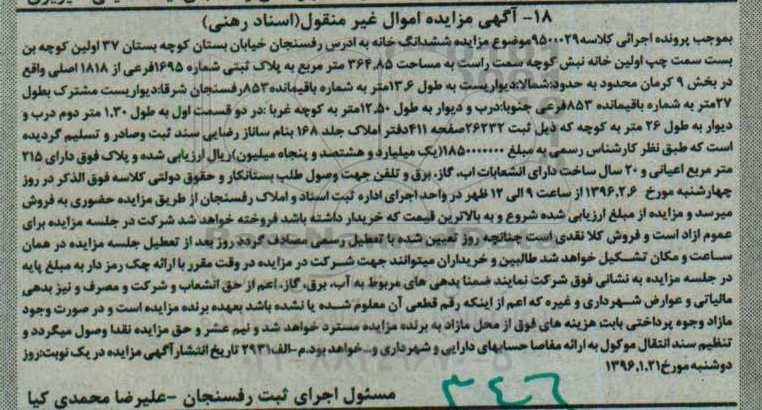 ۱۸- آگهی مزایده اموال غیر منقول(اسناد رهنی)
بموجب پرونده اجرائی کلاسه۹۵۰۰۰۲۹موضوع مزایده ششدانگ خانه به ادرس رفسنجان خیابان بستان کوچه بستان ۳۷ اولین کوچه بن
بست سمت چپ اولین خانه نبش کوچه سمت راست به مساحت ۳۶۴.۸۵ متر مربع به پلاک ثبتی شماره ۱۶۹۵فرعی از ۱۸۱۸ اصلی واقع
در بخش ۹ کرمان محدود به حدود:شمالا:دیواریست به طول ۱۳.۶متر به شماره باقیمانده۸۵۳رفسنجان شرقا:دیواریست مشترک بطول
۲۷متر به شماره باقیمانده ۸۵۳فرعی جنوبا:درب و دیوار به طول ۱۲.۵۰متر به کوچه غربا :در دو قسمت اول به طول ۱.۳۰ متر دوم درب و
دیوار به طول ۲۶ متر به کوچه که ذیل ثبت ۲۶۲۳۲صفحه ۴۱۱دفتر املاک جلد ۱۶۸ بنام ساناز رضایی سند ثبت وصادر و تسلیم گردیده
است که طبق نظر کارشناس رسمی به مبلغ ۱۸۵۰۰۰۰۰۰۰(یک میلیارد و هشتصد و پنجاه میلیون)ریال ارزیابی شده و پلاک فوق دارای ۲۱۵
متر مربع اعیانی و ۲۰ سال ساخت دارای انشعابات اب، گاز، برق و تلفن جهت وصول طلب بستانکار و حقوق دولتی کلاسه فوق الذکر در روز
چهارشنبه مورخ ۱۳۹۶.۲.۶ از ساعت ۹ الی ۱۲ ظهر در واحد اجرای اداره ثبت اسناد و املاک رفسنجان از طریق مزایده حضوری به فروش
میرسد و مزایده از مبلغ ارزیابی شده شروع و به بالاترین قیمت که خریدار داشته باشد فروخته خواهد شد شرکت در جلسه مزایده برای
عموم ازاد است و فروش کلا نقدی است چنانچه روز تعیین شده با تعطیل رسمی مصادف گردد روز بعد از تعطیل جلسه مزایده در همان
ساعت و مکان تشکیل خواهد شد طالبین و خریداران میتوانند جهت شرکت در مزایده در وقت مقرر با ارائه چک رمز دار به مبلغ پایه
در جلسه مزایده به نشانی فوق شرکت نمایند ضمنا بدهی های مربوط به آب، برق، گاز، اعم از حق انشعاب و شرکت و مصرف و نیز بدهی
مالیاتی و عوارض شهرداری و غیره که اعم از اینکه رقم قطعی آن معلوم شده یا نشده باشد بعهده برنده مزایده است و در صورت وجود
مازاد وجوه پرداختی بابت هزینه های فوق از محل مازاد به برنده مزایده مسترد خواهد شد و نیم عشر و حق مزایده نقدا وصول میگردد و
تنظیم سند انتقال موکول به ارائه مفاصا حسابهای دارایی و شهرداری و...خواهد بود.م-الف۲۹۳۱ تاریخ انتشارآگهی مزایده در یک نوبت:روز
دوشنبه مورخ۱۳۹۶.۱.۲۱
مسئول اجرای ثبت رفسنجان -علیرضا محمدی کیا
۳۴۶